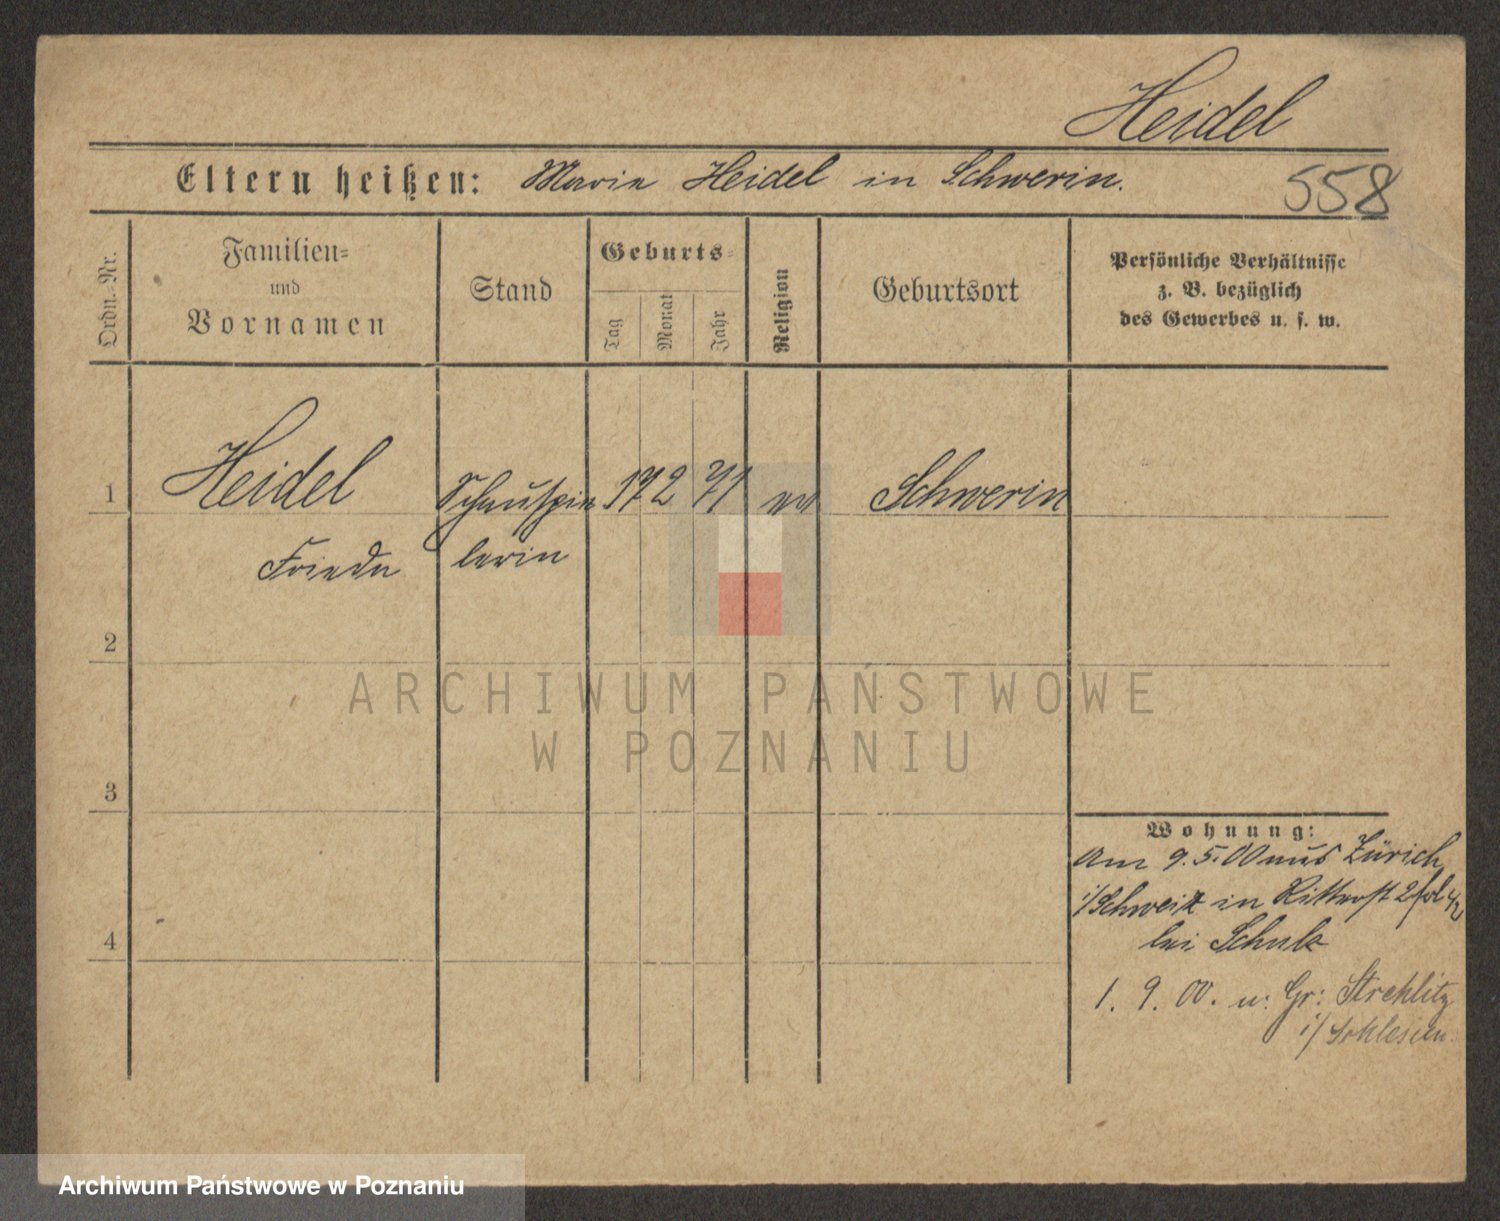 Heidel
Eltern heißen: Marie Heidel in Schwerin.
558
Ordn.-Nr.
Familien-
und
Vornamen
Stand
Geburts-
Tag
Monat
Jahr
Religion
Geburtsort
Persönliche Verhältnisse
z. B. bezüglich
des Gewerbes u. s. w.
1
Heidel
Schauspie
17 2 71
ev
Schwerin
Frieda
lerin
2
ARCHIWUM PAŃSTWOWE
W POZNANIU
3
Wohnung:
am 9.5.00 aus Zürich
i/Schweiz in Ritterst 2
bei Schulz
4
1. 9. 00. n. Gr: Strehlitz
i/ Schlesien.
Archiwum Państwowe w Poznaniu